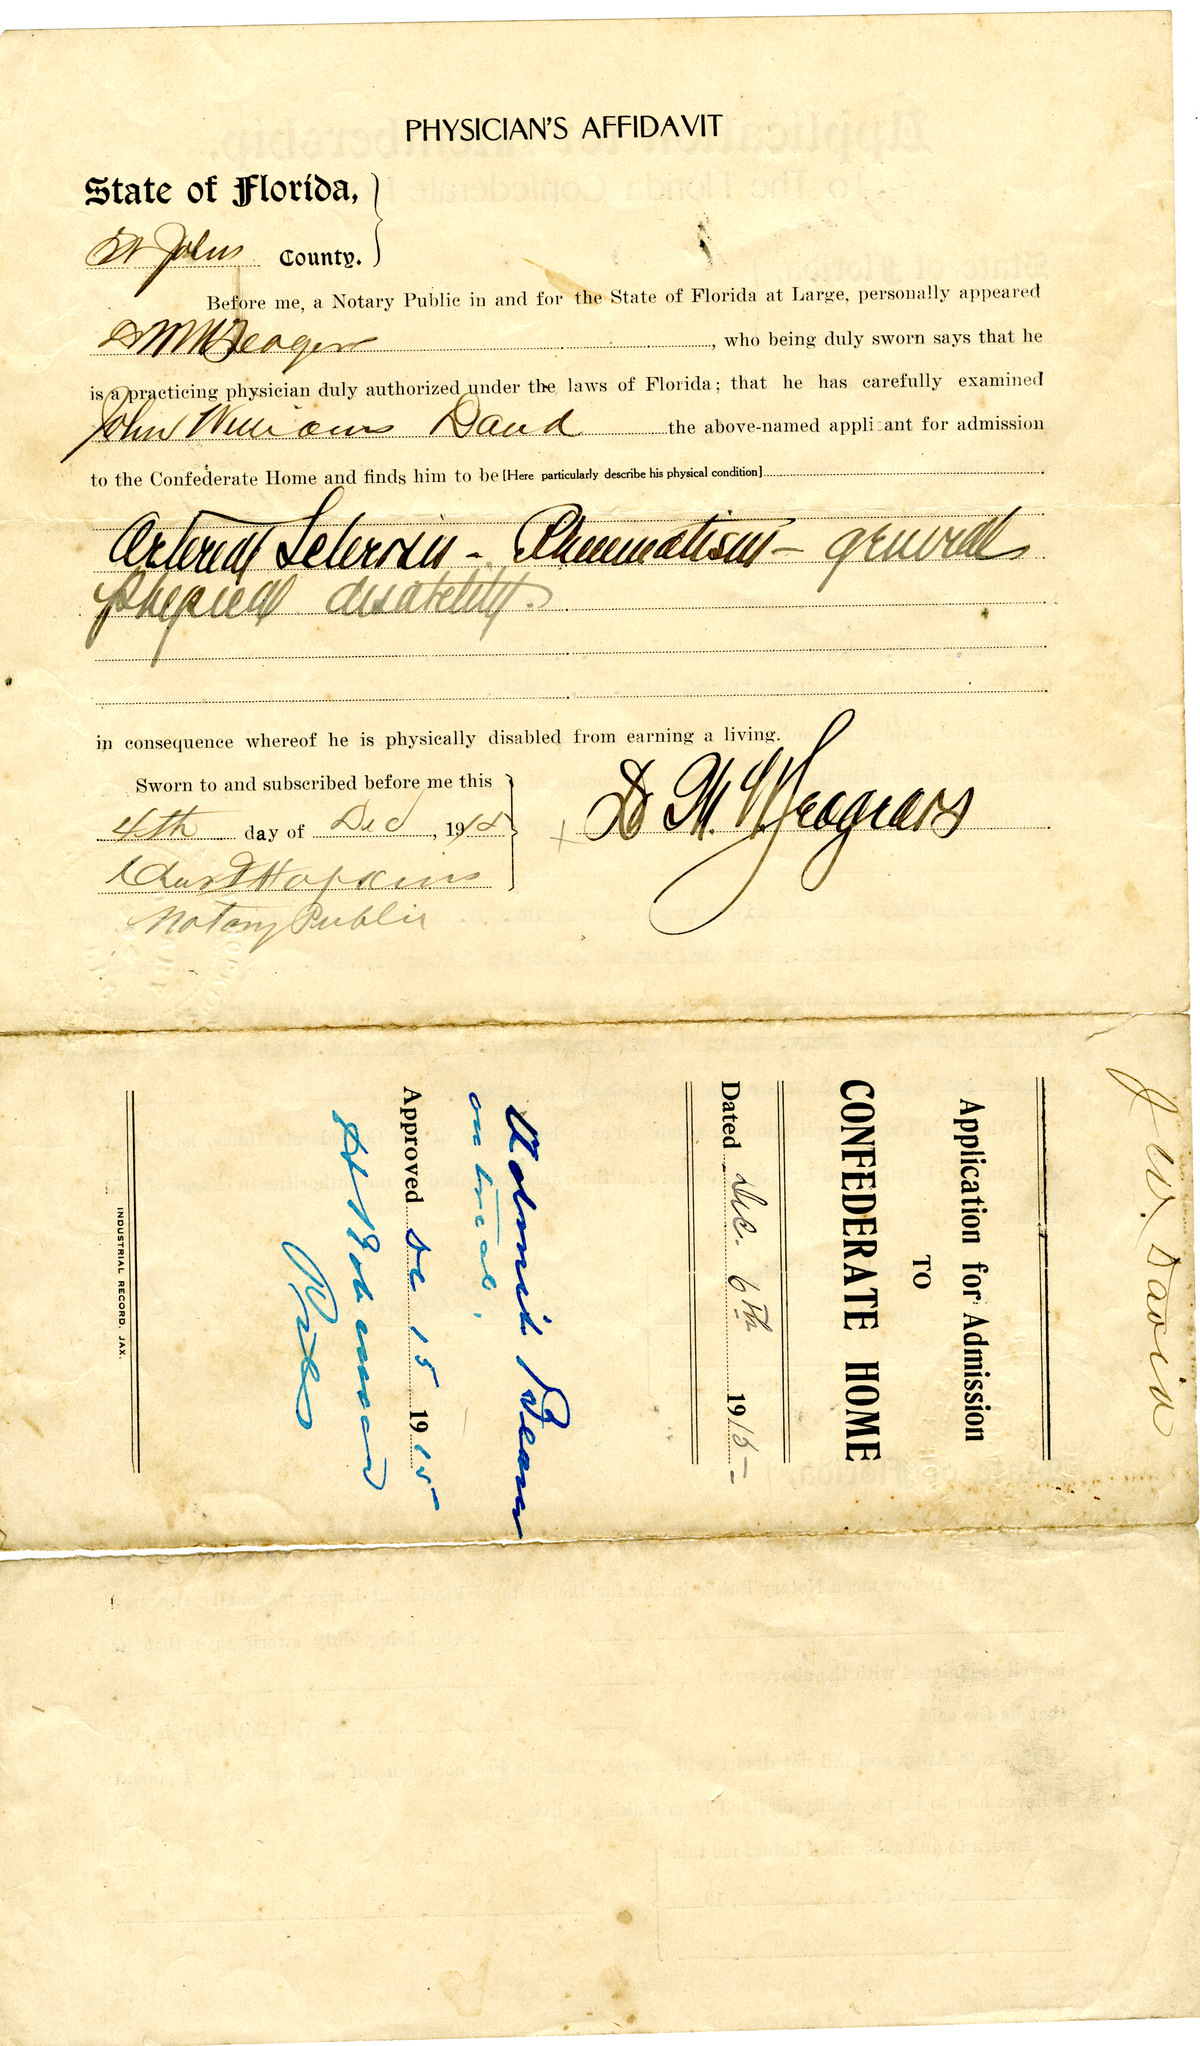 PHYSICIAN'S AFFIDAVIT
State of Florida,
St Johns County.
Before me, a Notary Public in and for the State of Florida at Large, personally appeared
Dr M W Seagers, who being duly sworn says that he
is a practicing physician duly authorized under the laws of Florida; that he has carefully examined
John Williams David the above-named applicant for admission
to the Confederate Home and finds him to be [Here particularly describe his physical condition]
Arterial Sclerosis - Rheumatism - general
physical disability.
in consequence whereof he is physically disabled from earning a living.
Sworn to and subscribed before me this
4th day of Dec, 1915
Dr M. W Seagears
Chas F Hopkins
Notary Public
J. W. David
Application for Admission
TO
CONFEDERATE HOME
Dated Dec. 6th 1915
Admit
on trial,
Approved De 15 1915
Pres
INDUSTRIAL RECORD, JAX.